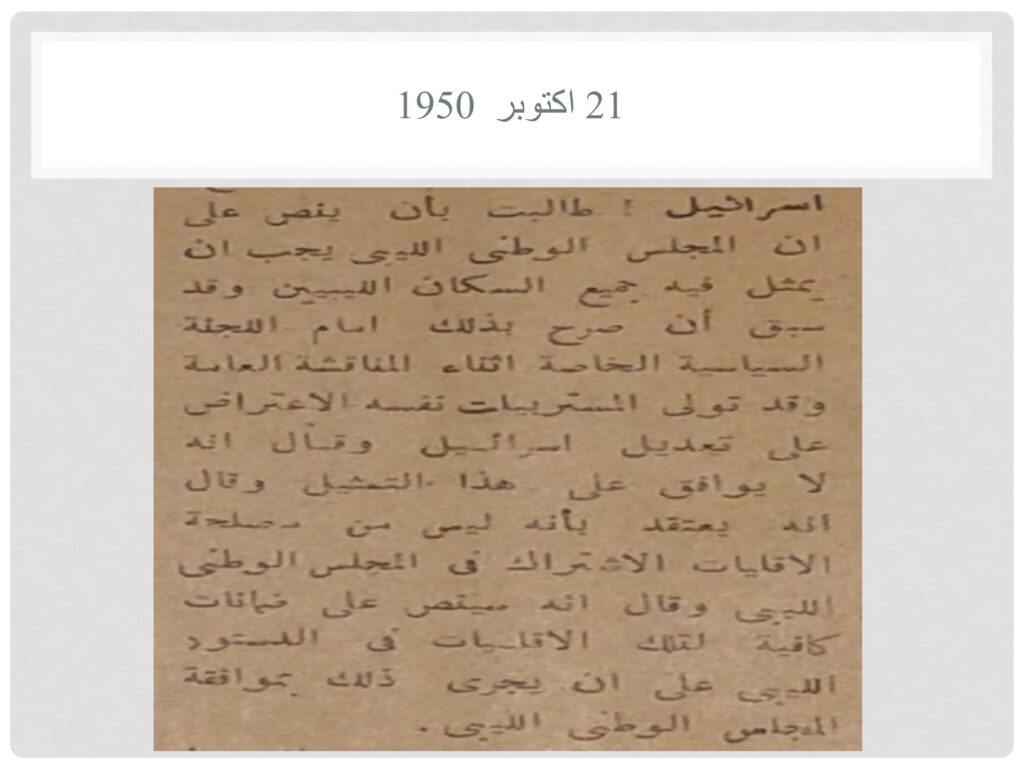 21 اكتوبر 1950
اسرائيل : طالبت بأن ينص على
ان المجلس الوطنى الليبى يجب ان
يمثل فيه جميع السكان الليبيين وقد
سبق أن صرح بذلك امام اللجنة
السياسية الخاصة اثناء المناقشة العامة
وقد تولى المستربيلت نفسه الاعتراض
على تعديل اسرائيل وقال انه
لا يوافق على هذا التمثيل وقال
انه يعتقد بأنه ليس من مصلحة
الاقليات الاشتراك فى المجلس الوطنى
الليبى وقال انه سينص على ضمانات
كافية لتلك الاقليات فى الدستور
الليبى على ان يجرى ذلك بموافقة
المجلس الوطنى الليبى .